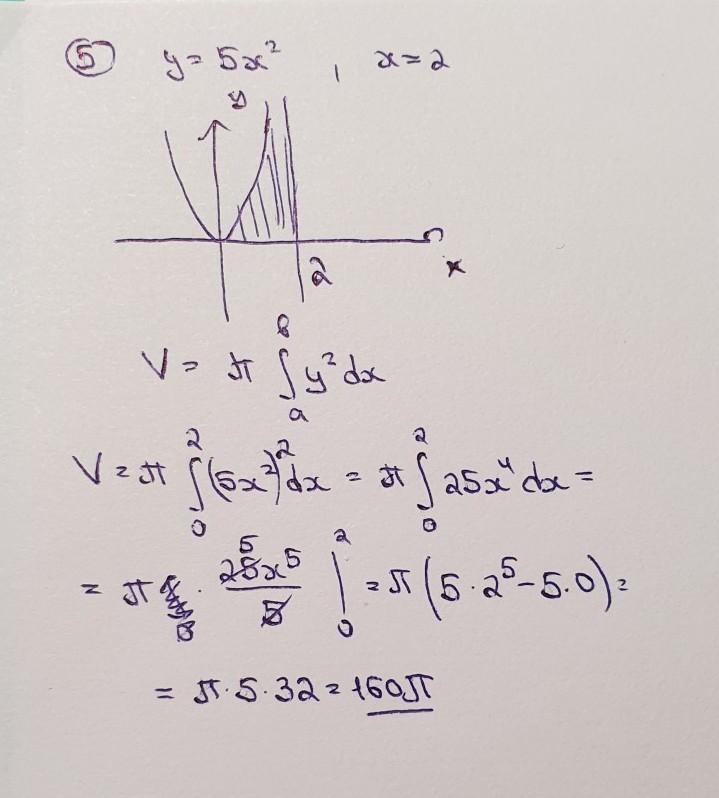 ⑤ y = 5x² , x = 2
y
2
x
V = π ∫ₐᵇ y² dx
V = π ∫₀² (5x²)² dx = π ∫₀² 25x⁴ dx =
= π · 25x⁵/5 |₀² = π (5 · 2⁵ - 5 · 0) =
= π · 5 · 32 = 160π